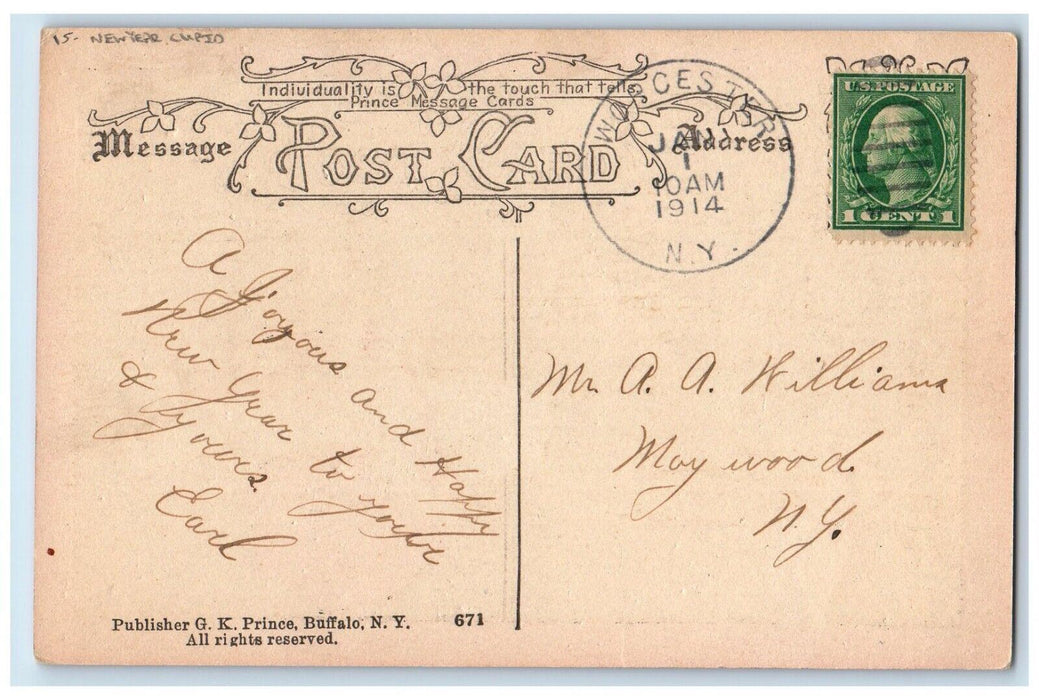 15- NEW YEAR CUPID
Individuality is the touch that tells.
Prince Message Cards
Message
POST CARD
Address
WORCESTER
JAN
1
10 AM
1914
N.Y.
U.S. POSTAGE
1 CENT 1
A Joyous and Happy
New Year to you
& yours.
Earl
Mr A. A. Williams
Maywood
N.Y.
Publisher G. K. Prince, Buffalo, N. Y.
All rights reserved.
671